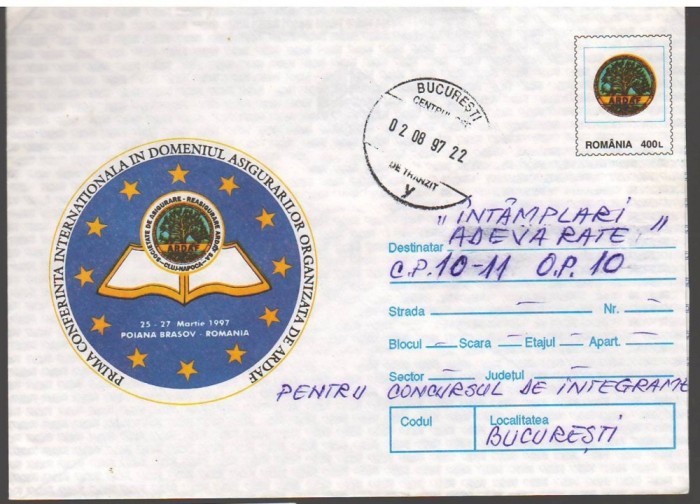 PRIMA CONFERINTA INTERNATIONALA IN DOMENIUL ASIGURARILOR ORGANIZATA DE ARDAF
SOCIETATE DE ASIGURARE - REASIGURARE ARDAF SA - CLUJ-NAPOCA
ARDAF
25 - 27 Martie 1997
POIANA BRASOV - ROMANIA
BUCUREȘTI
CENTRUL DE
02 08 97 22
DE TRANZIT
ARDAF
ROMÂNIA 400L
„ÎNTÂMPLARI
Destinatar ADEVARATE"
C.P. 10-11 O.P. 10
Strada — Nr. —
Blocul — Scara — Etajul — Apart. —
Sector — Județul —
PENTRU CONCURSUL DE INTEGRAME
Codul
Localitatea
BUCUREȘTI